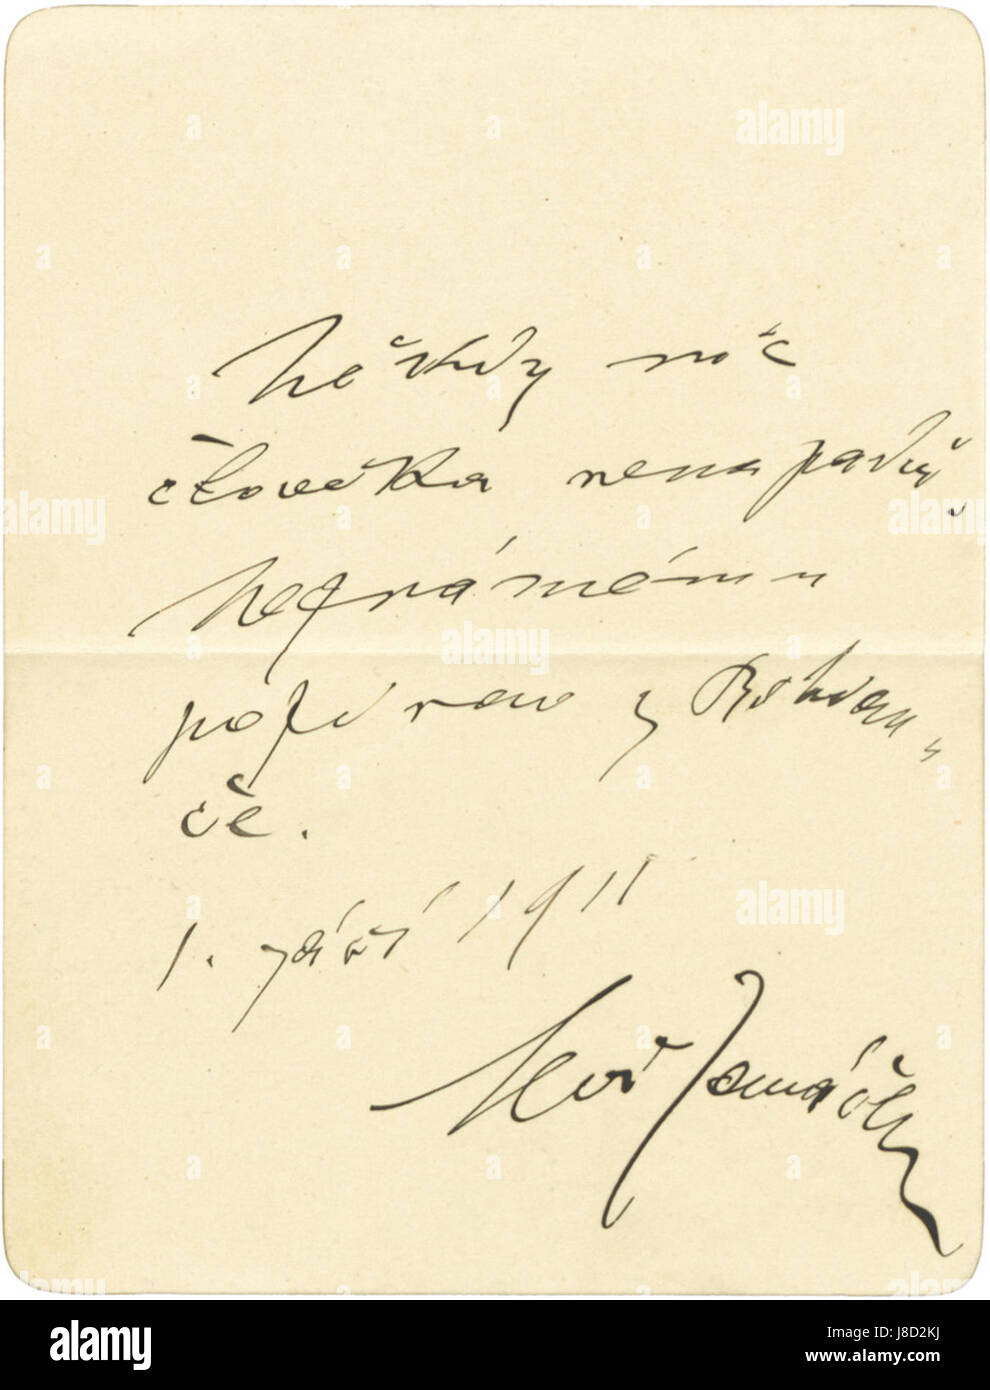 Někdy nic
člověka nenapadne.
Neznámému
pozdrav z Bohdan„
če.
1. září 1911
Leoš Janáček
alamy
Image ID: J8D2KJ
www.alamy.com